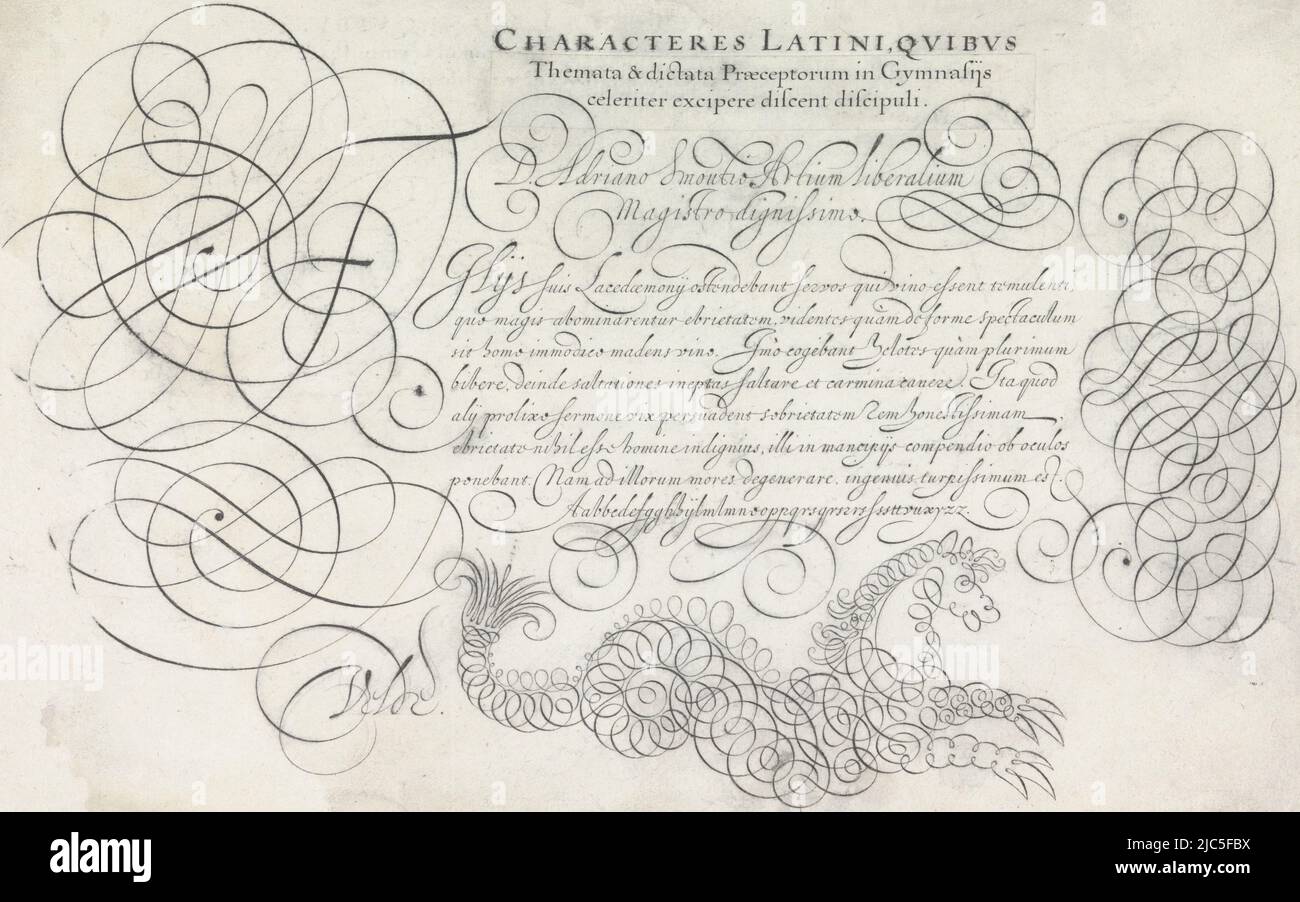 CHARACTERES LATINI, QVIBVS
Themata & dictata Præceptorum in Gymnasijs
celeriter excipere discent discipuli.
D. Adriano Smoutio Artium liberalium
Magistro dignissimo.
suis Lacedæmonij ostendebant servos qui vino essent temulenti,
quo magis abominarentur ebrietatem, videntes quàm deforme spectaculum
sit homo immodico madens vino. Imò cogebant Helotes quàm plurimum
bibere, deinde saltationes ineptas saltare et carmina canere. Ita quod
alij prolixo sermone vix persuadent sobrietatem rem honestissimam,
ebrietate nihil esse homine indignius, illi in mancipijs compendio ob oculos
ponebant. Nam ad illorum mores degenerare, ingenuis turpissimum est.
Velde.
alamy
Image ID: 2JC5FBX
www.alamy.com